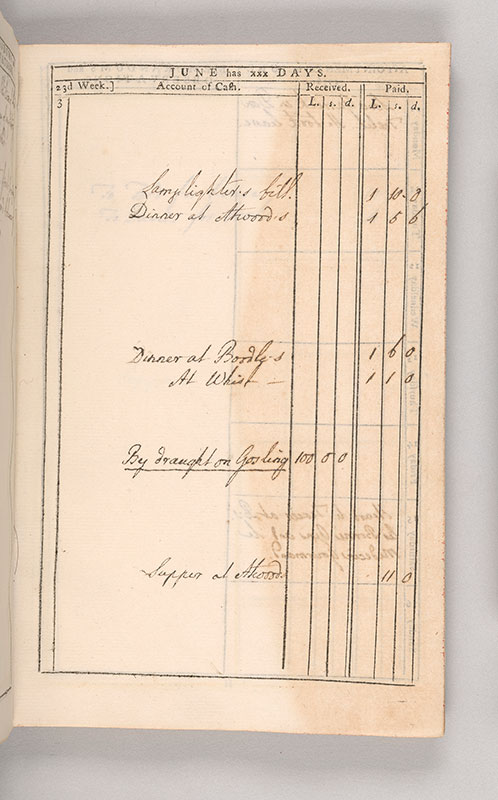 JUNE has xxx DAYS.
23d Week.] Account of Cash. Received. Paid.
L. s. d. L. s. d.
3
Lamplighter.s bill. 1 10 0
Dinner at Atwood.s 1 5 6
Dinner at Boodle.s 1 6 0
At Whist — 1 1 0
By draught on Gosling 100 0 0
Supper at Atwoods 11 0